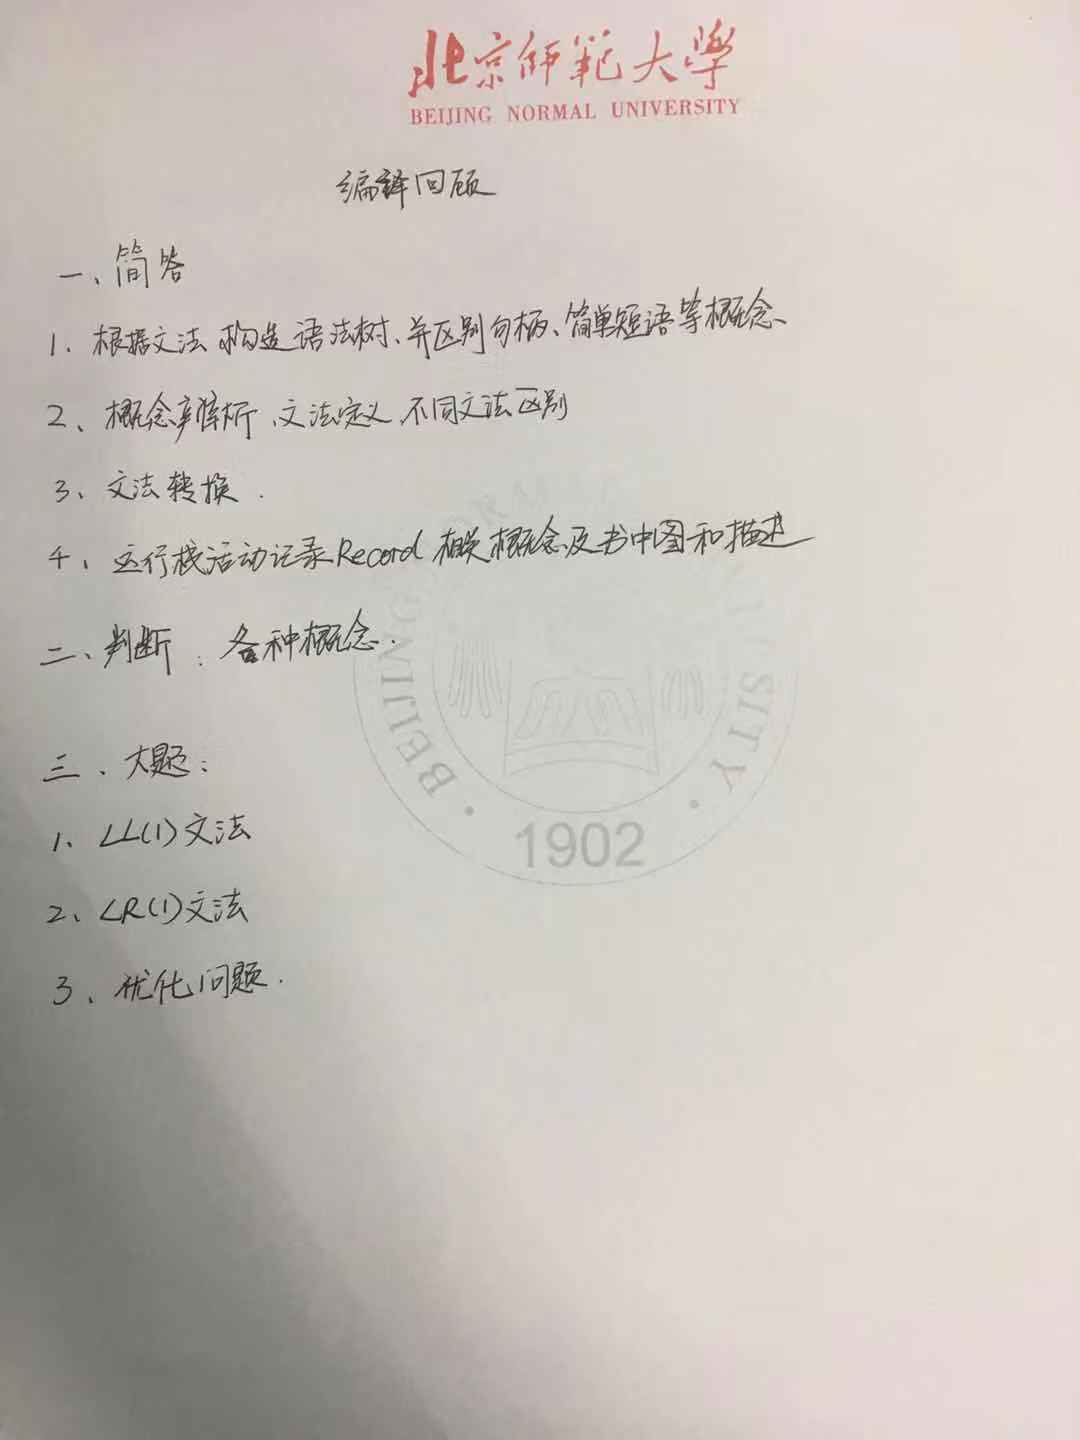 北京师范大学
BEIJING NORMAL UNIVERSITY
编译回顾
一、简答
1、根据文法构造语法树、并区别句柄、简单短语等概念、
2、概念辨析、文法定义、不同文法区别
3、文法转换.
4、运行栈活动记录Record 相关概念及书中图和描述
二、判断：各种概念.
三、大题：
1、LL(1)文法
2、LR(1)文法
3、优化问题.
1902